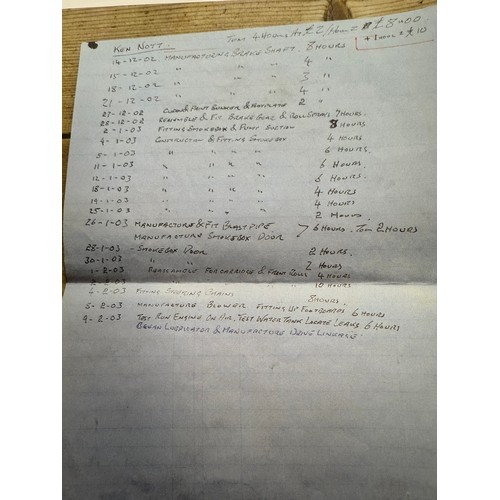 KEN NOTT. Tom 4 Hours At £2/Hour = £8=00
+ 1 Hour = £10
14-12-02. MANUFACTURING BRAKE SHAFT. 8 HOURS
15-12-02 " " " 4 "
18-12-02 " " " 3 "
21-12-02 " " " 4 "
27-12-02 CLEAN & PAINT 2 "
28-12-02 ASSEMBLE & FIT BRAKE GEAR & 7 HOURS
2-1-03 FITTING SMOKEBOX & PAINT BOTTOM 8 HOURS.
4-1-03 CONSTRUCTION & FITTING SMOKEBOX 4 HOURS
5-1-03 " " " " 6 HOURS.
11-1-03 " " " " 6 HOURS
12-1-03 " " " " 6 HOURS.
18-1-03 " " " " 4 HOURS
19-1-03 " " " " 4 HOURS.
25-1-03 " " " " 2 HOURS.
26-1-03 MANUFACTURE & FIT BLASTPIPE
MANUFACTURE SMOKEBOX DOOR 6 HOURS. Tom 2 HOURS
28-1-03 - SMOKEBOX DOOR 2 HOURS.
30-1-03 " " 2 HOURS
1-2-03 REASSEMBLE FORECARRIDGE & FRONT 4 HOURS
2-2-03 " " 10 HOURS
4-2-03 FITTING STEERING CHAINS
5-2-03 MANUFACTURE BLOWER FITTING UP FOOTPLATES 8 HOURS. 6 HOURS
9-2-03 TEST RUN ENGINE ON AIR. TEST WATER TANK LOCATE LEAKS 6 HOURS
LUBRICATOR & MANUFACTURE DRIVE LINKAGE.